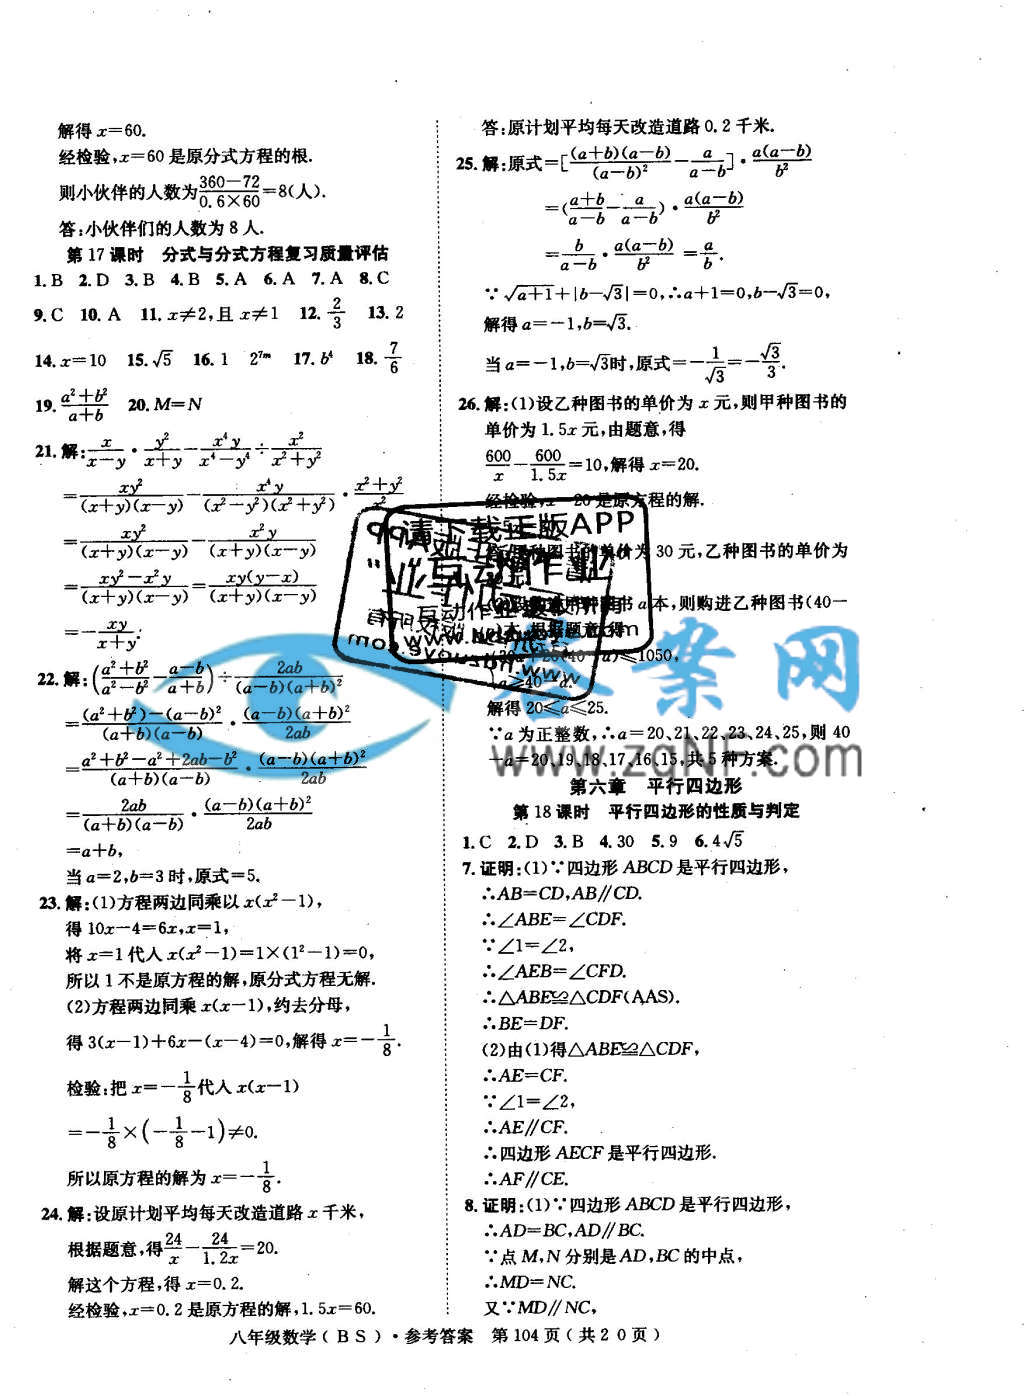 解得 x=60.
经检验,x=60 是原分式方程的根.
则小伙伴的人数为(360-72)/(0.6×60)=8(人).
答:小伙伴们的人数为 8 人.
第 17 课时 分式与分式方程复习质量评估
1.B 2.D 3.B 4.B 5.A 6.A 7.A 8.C
9.C 10.A 11.x≠2,且 x≠1 12.2/3 13.2
14.x=10 15.√5 16.1 2^(7m) 17.b⁴ 18.7/6
19.(a²+b²)/(a+b) 20.M=N
21.解:x/(x-y)·y²/(x+y)-x⁴y/(x⁴-y⁴)÷x²/(x²+y²)
=xy²/((x+y)(x-y))-x⁴y/((x²-y²)(x²+y²))·(x²+y²)/x²
=xy²/((x+y)(x-y))-x²y/((x+y)(x-y))
=(xy²-x²y)/((x+y)(x-y))=xy(y-x)/((x+y)(x-y))
=-xy/(x+y).
22.解:((a²+b²)/(a²-b²)-(a-b)/(a+b))÷2ab/((a-b)(a+b)²)
=((a²+b²)-(a-b)²)/((a+b)(a-b))·(a-b)(a+b)²/2ab
=(a²+b²-a²+2ab-b²)/((a+b)(a-b))·(a-b)(a+b)²/2ab
=2ab/((a+b)(a-b))·(a-b)(a+b)²/2ab
=a+b,
当 a=2,b=3 时,原式=5.
23.解:(1)方程两边同乘以 x(x²-1),
得 10x-4=6x,x=1,
将 x=1 代入 x(x²-1)=1×(1²-1)=0,
所以 1 不是原方程的解,原分式方程无解.
(2)方程两边同乘 x(x-1),约去分母,
得 3(x-1)+6x-(x-4)=0,解得 x=-1/8.
检验:把 x=-1/8代入 x(x-1)
=-1/8×(-1/8-1)≠0.
所以原方程的解为 x=-1/8.
24.解:设原计划平均每天改造道路 x 千米,
根据题意,得24/x-24/1.2x=20.
解这个方程,得 x=0.2.
经检验,x=0.2 是原方程的解,1.5x=60.
答:原计划平均每天改造道路 0.2 千米.
25.解:原式=[(a+b)(a-b)/(a-b)²-a/(a-b)]·a(a-b)/b²
=((a+b)/(a-b)-a/(a-b))·a(a-b)/b²
=b/(a-b)·a(a-b)/b²=a/b.
∵√(a+1)+|b-√3|=0,∴a+1=0,b-√3=0,
解得 a=-1,b=√3.
当 a=-1,b=√3时,原式=-1/√3=-√3/3.
26.解:(1)设乙种图书的单价为 x 元,则甲种图书的
单价为 1.5x 元,由题意,得
600/x-600/1.5x=10,解得 x=20.
经检验,x=20 是原方程的解.
种图书的单价为 30 元,乙种图书的单价为
书 a 本,则购进乙种图书(40-
本,根据题意,得
≤1050,
解得 20≤a≤25.
∵a 为正整数,∴a=20,21,22,23,24,25,则 40
-a=20,19,18,17,16,15,共 5 种方案.
第六章 平行四边形
第 18 课时 平行四边形的性质与判定
1.C 2.D 3.B 4.30 5.9 6.4√5
7.证明:(1)∵四边形 ABCD 是平行四边形,
∴AB=CD,AB∥CD.
∴∠ABE=∠CDF.
∵∠1=∠2,
∴∠AEB=∠CFD.
∴△ABE≌△CDF(AAS).
∴BE=DF.
(2)由(1)得△ABE≌△CDF,
∴AE=CF.
∵∠1=∠2,
∴AE∥CF.
∴四边形 AECF 是平行四边形.
∴AF∥CE.
8.证明:(1)∵四边形 ABCD 是平行四边形,
∴AD=BC,AD∥BC.
∵点 M,N 分别是 AD,BC 的中点,
∴MD=NC.
又∵MD∥NC,
请下载正版APP
八年级数学(BS)·参考答案 第104页(共20页)